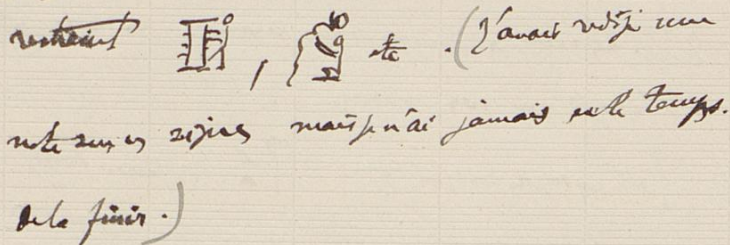 restreint , etc. (J'avais rédigé une
note sur ces signes mais je n'ai jamais eu le temps.
de la finir.)